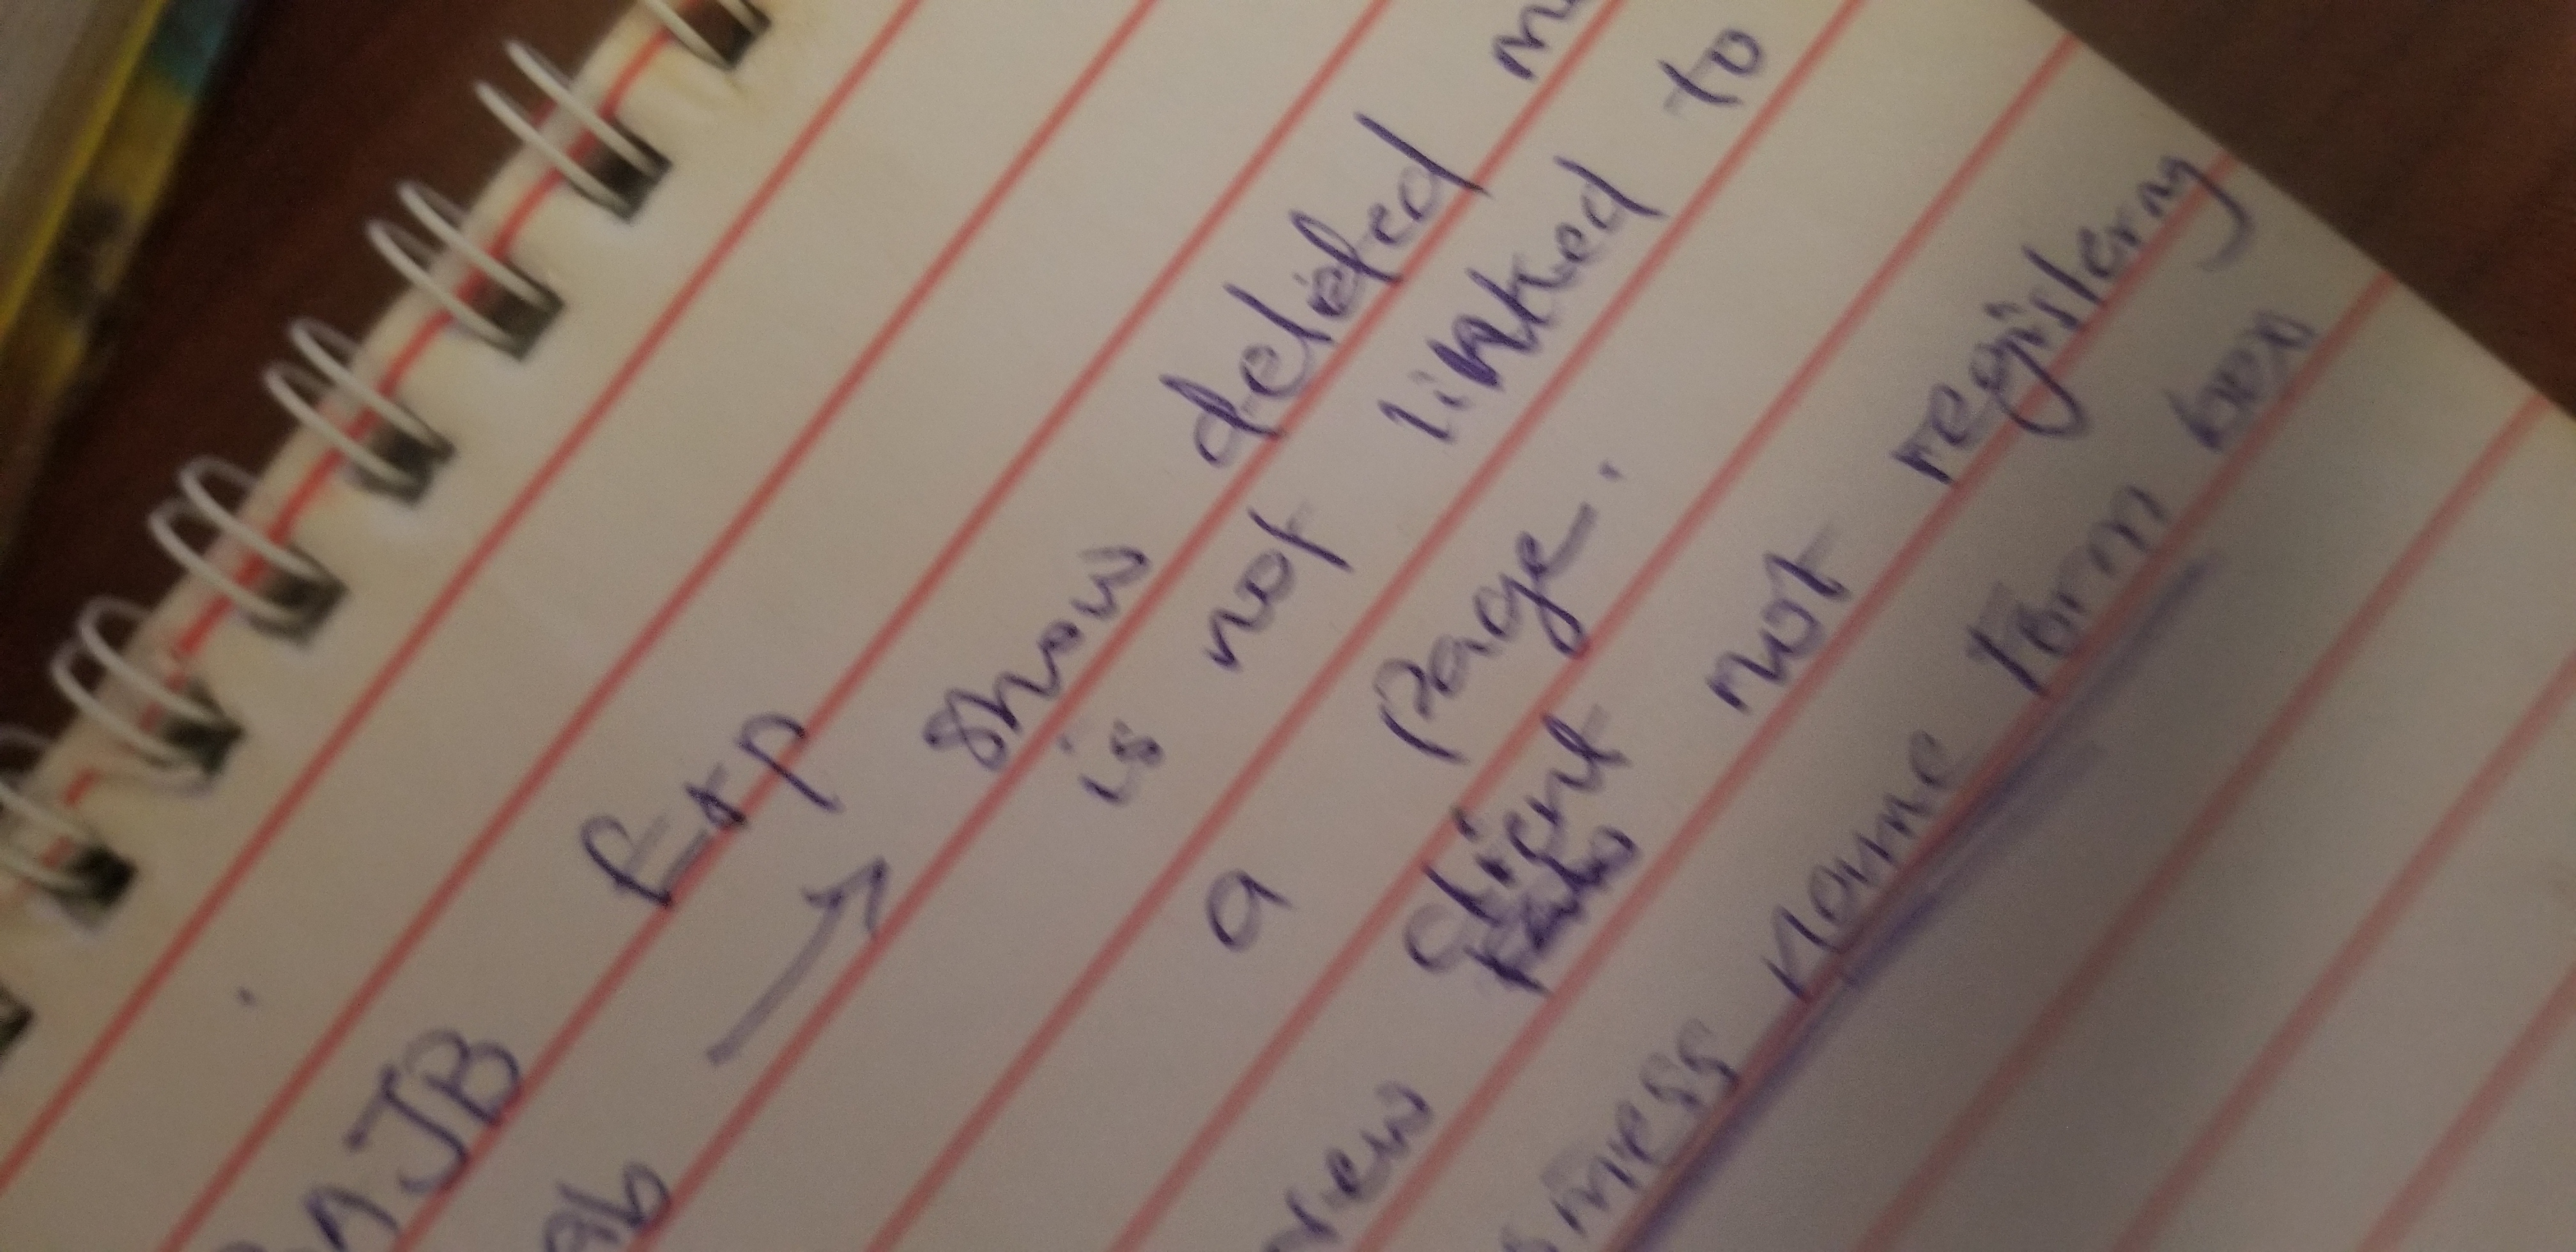 JB Erp
ab → show deleted
is not linked to
a page.
new client not registering
name form box